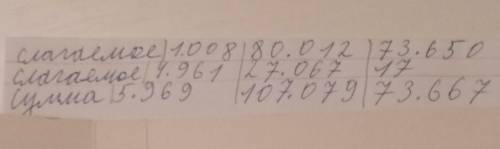 слагаемое | 1.008 | 80.012 | 73.650
слагаемое | 4.961 | 27.067 | 17
сумма | 5.969 | 107.079 | 73.667